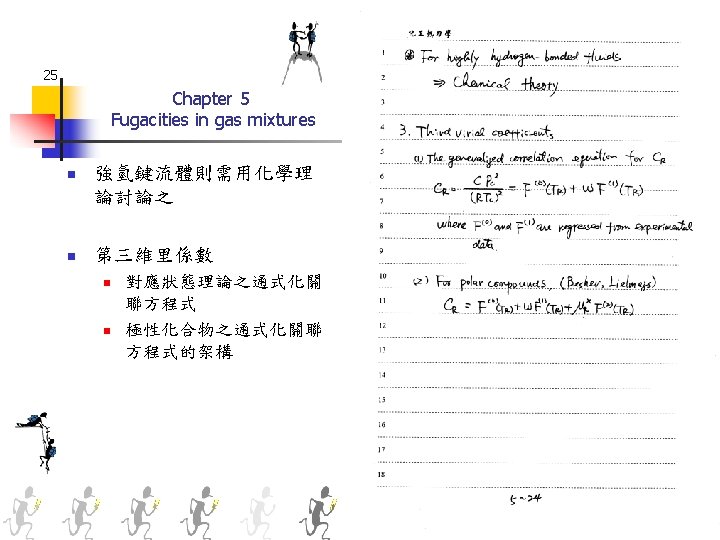 25
Chapter 5
Fugacities in gas mixtures
強氫鍵流體則需用化學理
論討論之
第三維里係數
對應狀態理論之通式化關
聯方程式
極性化合物之通式化關聯
方程式的架構
化工熱力學
1 ⊛ For highly hydrogen-bonded fluids
2 ⇒ Chemical theory
3
4 3. Third virial coefficients
5 (1) The generalized correlation equation for CR
6 CR = C Pc² / (RTc)² = F⁽⁰⁾(TR) + ω F⁽¹⁾(TR)
7
8 where F⁽⁰⁾ and F⁽¹⁾ are regressed from experimental
9 data.
10 (2) For polar compounds, (Besher, Lielmezs)
11 CR = F⁽⁰⁾(TR) + ωF⁽¹⁾(TR) + F⁽²⁾(TR)
12
13
14
15
16
17
18
5-24